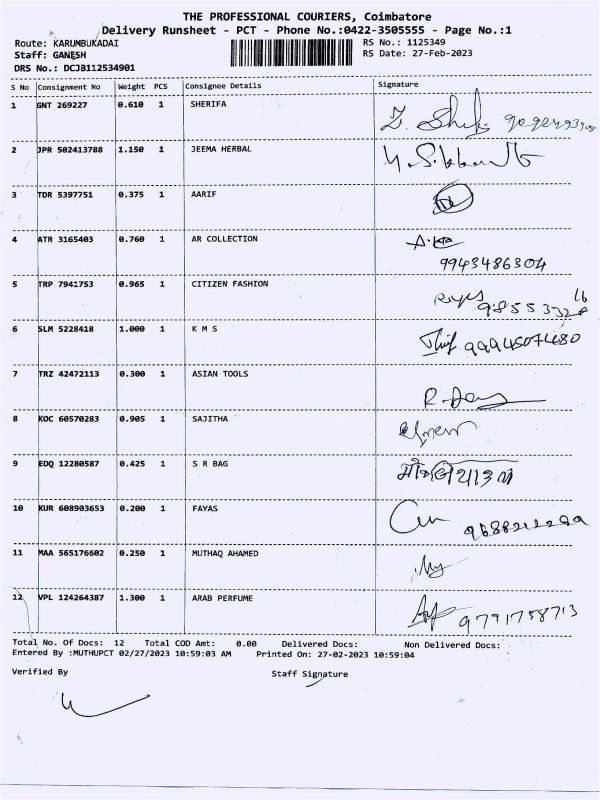 THE PROFESSIONAL COURIERS, Coimbatore
Delivery Runsheet - PCT - Phone No.:0422-3505555 - Page No.:1
Route: KARUMBUKADAI
RS No.: 1125349
Staff: GANESH
RS Date: 27-Feb-2023
DRS No.: DCJB112534901
S No Consignment No Weight PCS Consignee Details Signature
1 GNT 269227 0.610 1 SHERIFA
2 JPR 502413788 1.150 1 JEEMA HERBAL
3 TDR 5397751 0.375 1 AARIF
4 ATR 3165403 0.760 1 AR COLLECTION
9943486304
5 TRP 7941753 0.965 1 CITIZEN FASHION
6 SLM 5228418 1.000 1 K M S
99945074680
7 TRZ 42472113 0.300 1 ASIAN TOOLS
8 KOC 60570283 0.905 1 SAJITHA
9 EDQ 12280587 0.425 1 S R BAG
10 KUR 608903653 0.200 1 FAYAS
11 MAA 565176602 0.250 1 MUTHAQ AHAMED
12 VPL 124264387 1.300 1 ARAB PERFUME
9791758713
Total No. Of Docs: 12 Total COD Amt: 0.00 Delivered Docs: Non Delivered Docs:
Entered By :MUTHUPCT 02/27/2023 10:59:03 AM Printed On: 27-02-2023 10:59:04
Verified By Staff Signature